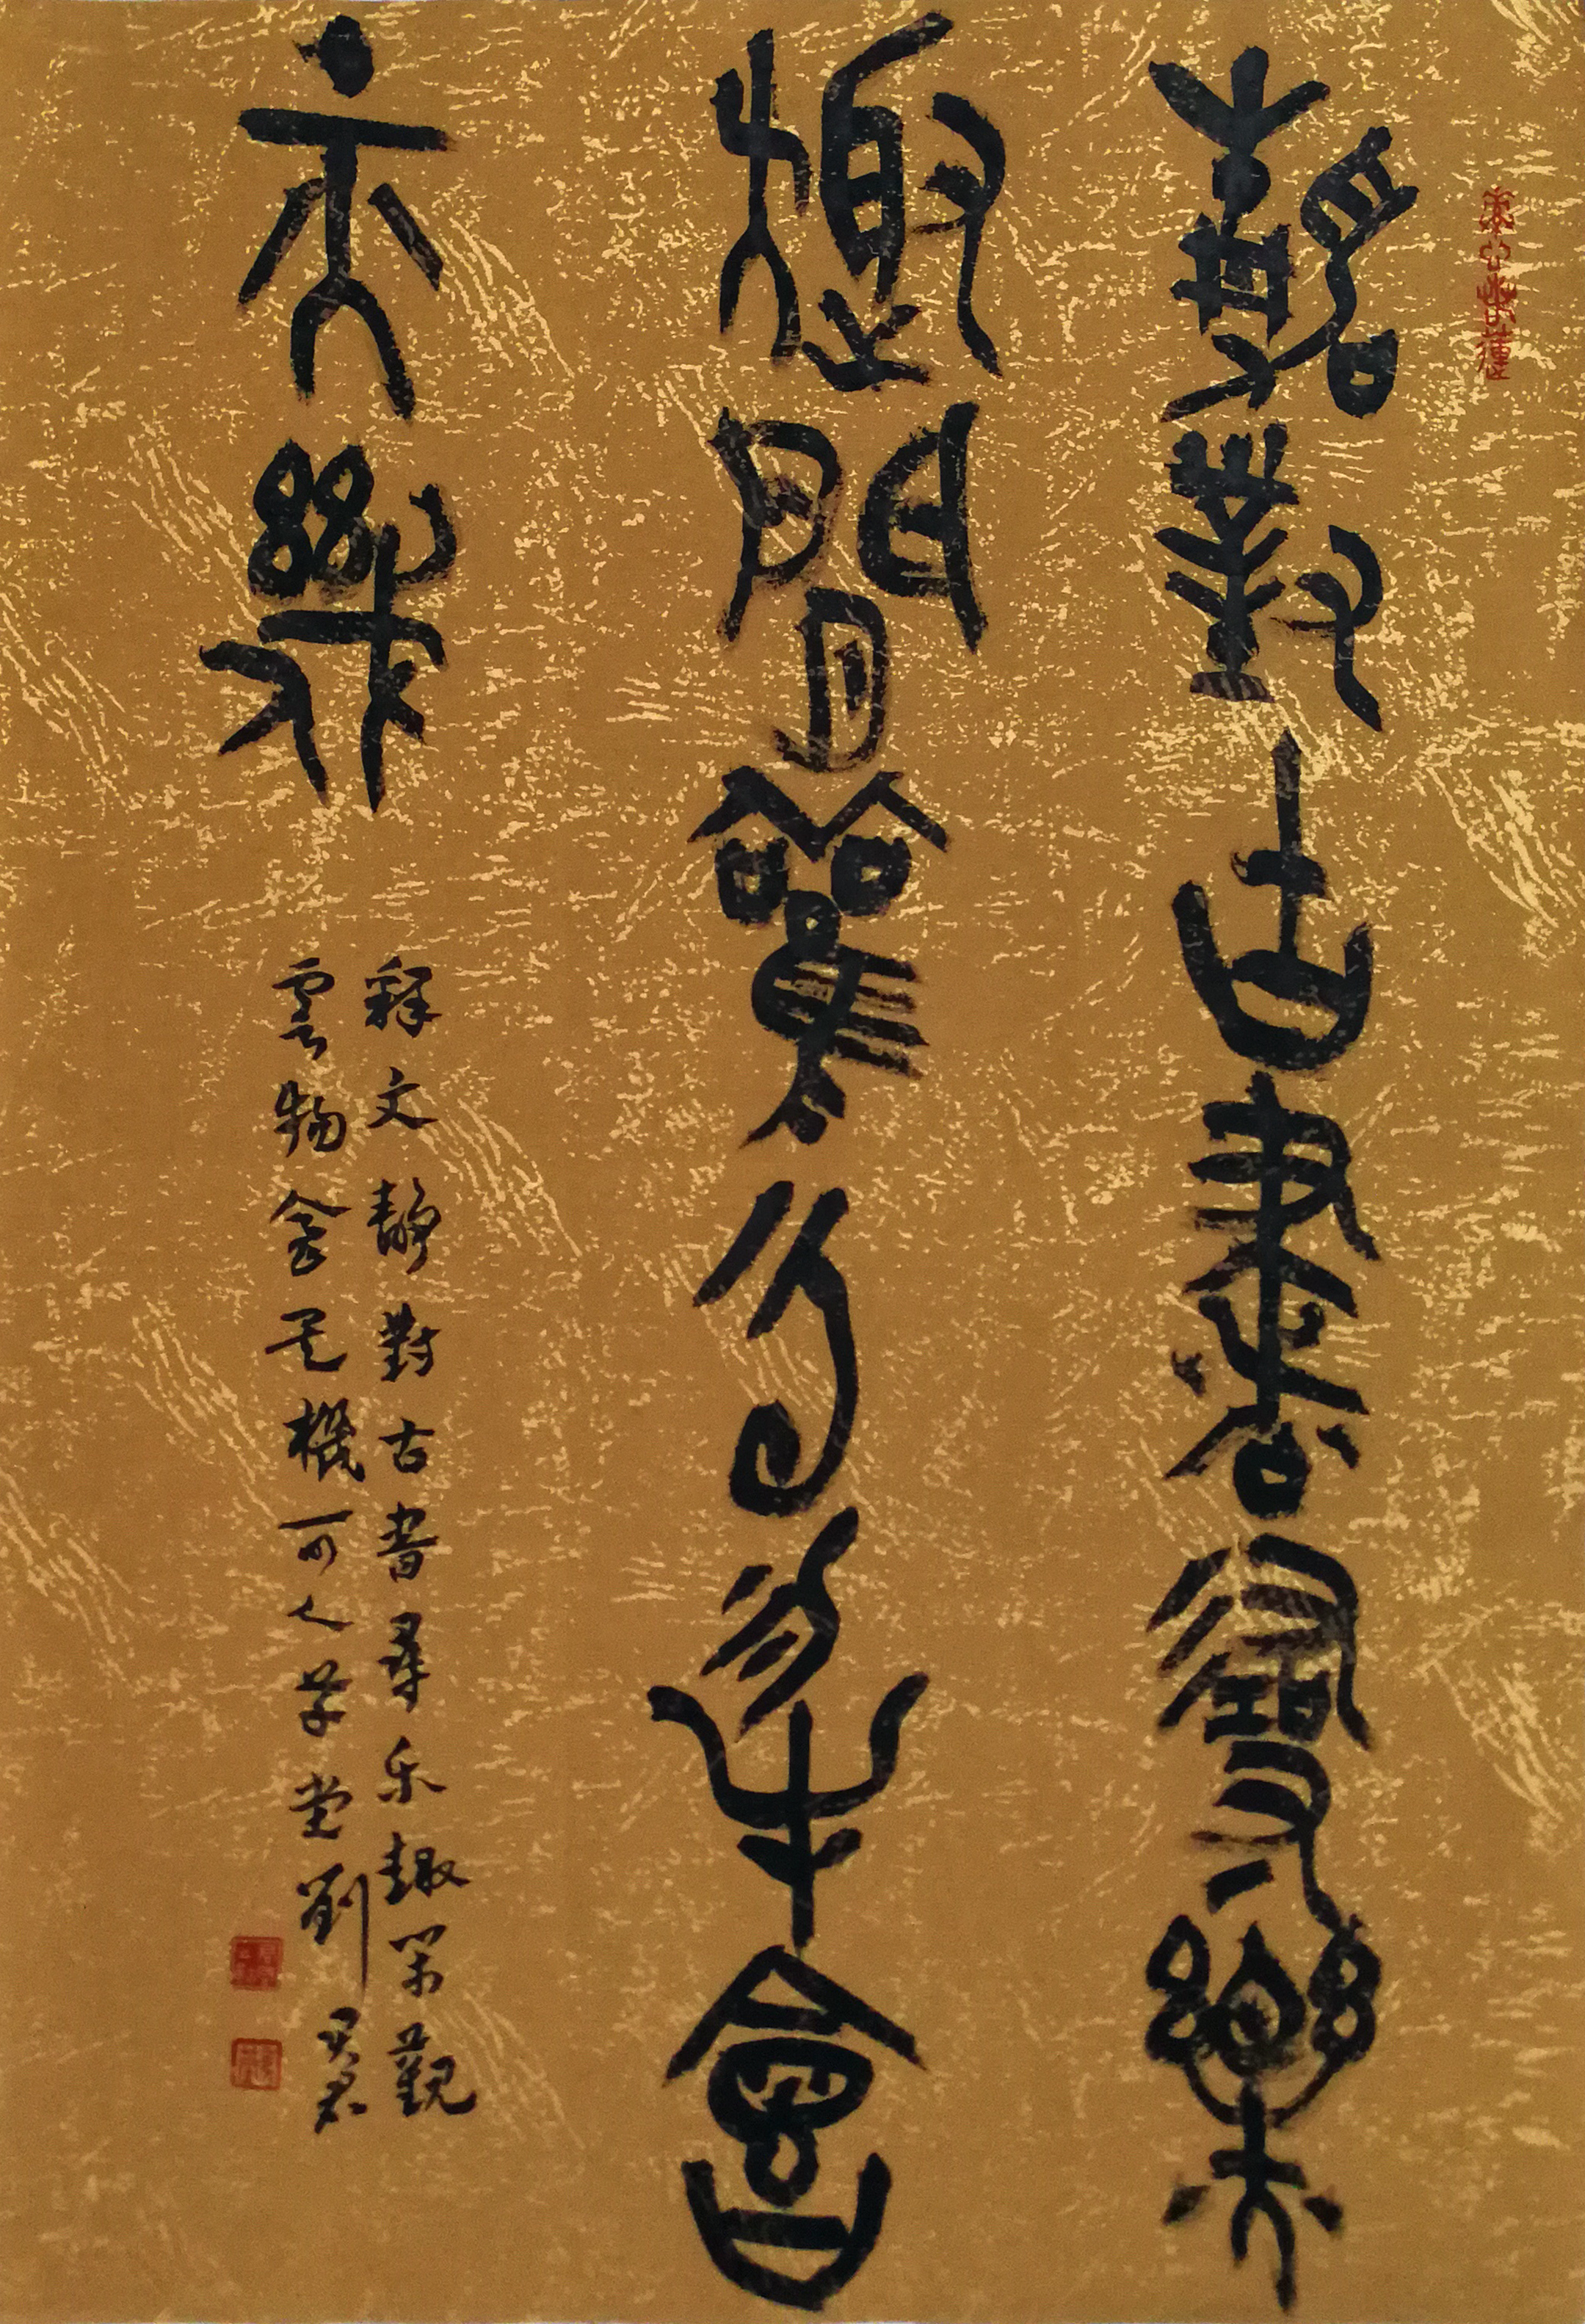 靜對古書尋樂
趣閒觀雲物會
天機
释文靜對古書尋乐趣闲觀
雲物会天機可人草堂劉